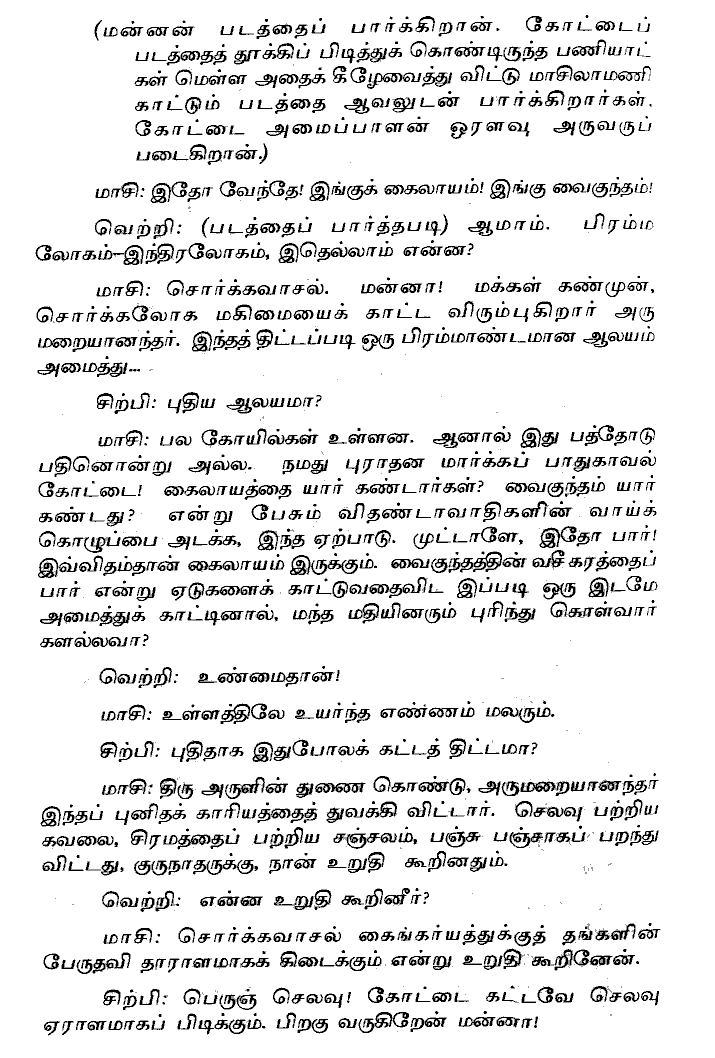 (மன்னன் படத்தைப் பார்க்கிறான். கோட்டைப்
படத்தைத் தூக்கிப் பிடித்துக் கொண்டிருந்த பணியாட்
கள் மெள்ள அதைக் கீழேவைத்து விட்டு மாசிலாமணி
காட்டும் படத்தை ஆவலுடன் பார்க்கிறார்கள்.
கோட்டை அமைப்பாளன் ஓரளவு அருவருப்
படைகிறான்.)
மாசி: இதோ வேந்தே! இங்குக் கைலாயம்! இங்கு வைகுந்தம்!
வெற்றி: (படத்தைப் பார்த்தபடி) ஆமாம். பிரம்ம
லோகம்–இந்திரலோகம், இதெல்லாம் என்ன?
மாசி: சொர்க்கவாசல். மன்னா! மக்கள் கண்முன்,
சொர்க்கலோக மகிமையைக் காட்ட விரும்புகிறார் அரு
மறையானந்தர். இந்தத் திட்டப்படி ஒரு பிரம்மாண்டமான ஆலயம்
அமைத்து...
சிற்பி: புதிய ஆலயமா?
மாசி: பல கோயில்கள் உள்ளன. ஆனால் இது பத்தோடு
பதினொன்று அல்ல. நமது புராதன மார்க்கப் பாதுகாவல்
கோட்டை! கைலாயத்தை யார் கண்டார்கள்? வைகுந்தம் யார்
கண்டது? என்று பேசும் விதண்டாவாதிகளின் வாய்க்
கொழுப்பை அடக்க, இந்த ஏற்பாடு. முட்டாளே, இதோ பார்!
இவ்விதம்தான் கைலாயம் இருக்கும். வைகுந்தத்தின் வசீகரத்தைப்
பார் என்று ஏடுகளைக் காட்டுவதைவிட இப்படி ஒரு இடமே
அமைத்துக் காட்டினால், மந்த மதியினரும் புரிந்து கொள்வார்
களல்லவா?
வெற்றி: உண்மைதான்!
மாசி: உள்ளத்திலே உயர்ந்த எண்ணம் மலரும்.
சிற்பி: புதிதாக இதுபோலக் கட்டத் திட்டமா?
மாசி: திரு அருளின் துணை கொண்டு, அருமறையானந்தர்
இந்தப் புனிதக் காரியத்தைத் துவக்கி விட்டார். செலவு பற்றிய
கவலை, சிரமத்தைப் பற்றிய சஞ்சலம், பஞ்சு பஞ்சாகப் பறந்து
விட்டது, குருநாதருக்கு, நான் உறுதி கூறினதும்.
வெற்றி: என்ன உறுதி கூறினீர்?
மாசி: சொர்க்கவாசல் கைங்கர்யத்துக்குத் தங்களின்
பேருதவி தாராளமாகக் கிடைக்கும் என்று உறுதி கூறினேன்.
சிற்பி: பெருஞ் செலவு! கோட்டை கட்டவே செலவு
ஏராளமாகப் பிடிக்கும். பிறகு வருகிறேன் மன்னா!